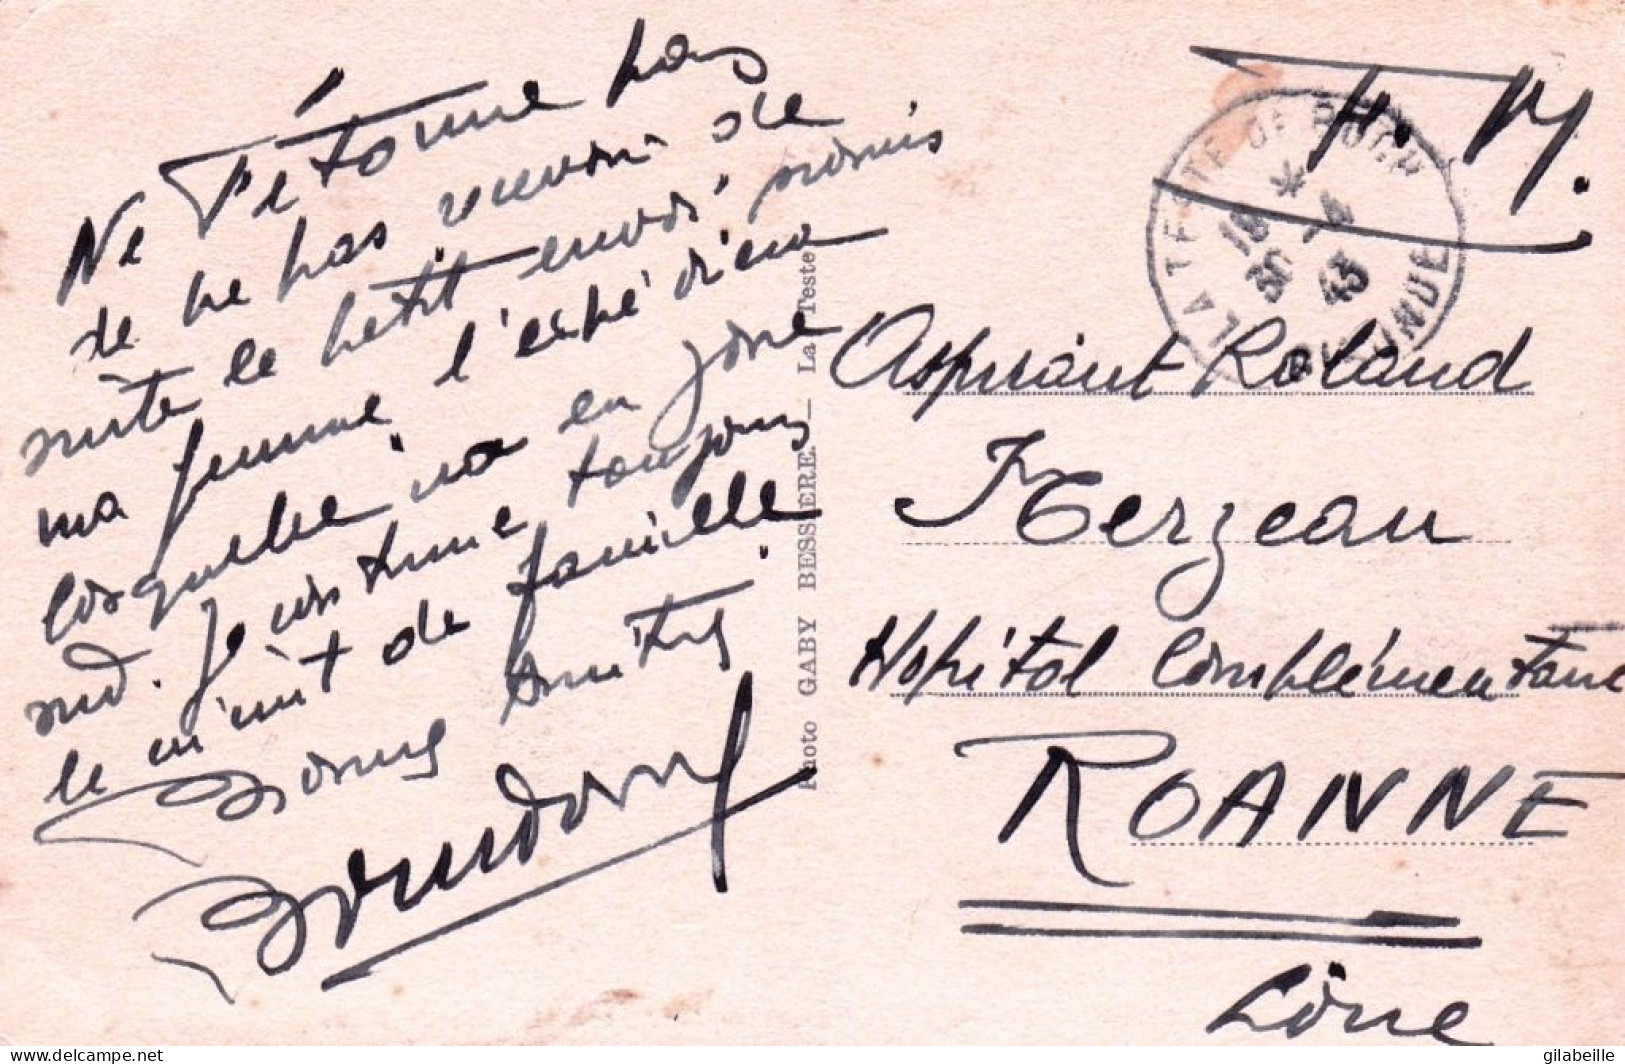 Ne t'étonne pas
de ne pas recevoir de
suite le petit envoi, mais
ma femme l'expédiera
lorsqu'elle ira en zone
sud. Je continue toujours
le circuit de famille.
Bonnes amitiés
Photo GABY BESSIERE _ La Teste
F. M.
LA TESTE DE BUCH
18 *
30 -4
43
GIRONDE
Aspirant Roland
Kerzeau
Hopital Complémentaire
ROANNE
Loire
gilabeille